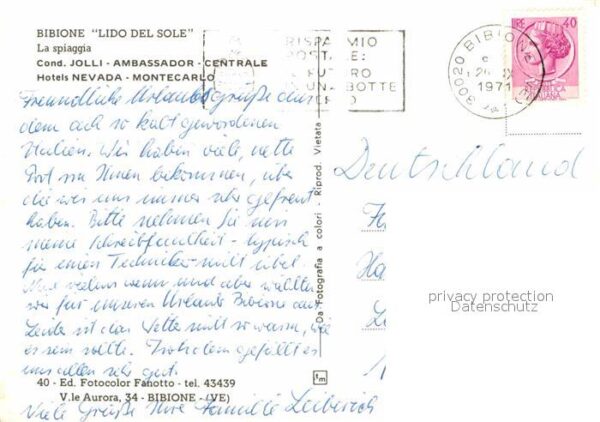 BIBIONE "LIDO DEL SOLE"
La spiaggia
Cond. JOLLI - AMBASSADOR - CENTRALE
Hotels NEVADA - MONTECARLO
RISPARMIO
POSTALE:
FUTURO
UNA BOTTE
30020 BIBIONE (VE)
1971
40
Freundliche Urlaubsgrüße aus
dem ach so kalt gewordenen
Italien. Wir haben viele, nette
Post von Ihnen bekommen, über
die wir uns immer sehr gefreut
haben. Bitte nehmen Sie mir
meine Schreibfaulheit - typisch
für einen Techniker - nicht übel.
wenn und aber wählten
wir für unseren Urlaub Bibione aus.
Leider ist das Wetter nicht so warm, wie
es sein sollte. Trotzdem gefällt es
uns allen sehr gut.
Viele Grüße Ihre Familie
Deutschland
Da Fotografia a colori - Riprod. Vietata
privacy protection
Datenschutz
40 - Ed. Fotocolor Fanotto - tel. 43439
V.le Aurora, 34 - BIBIONE - (VE)